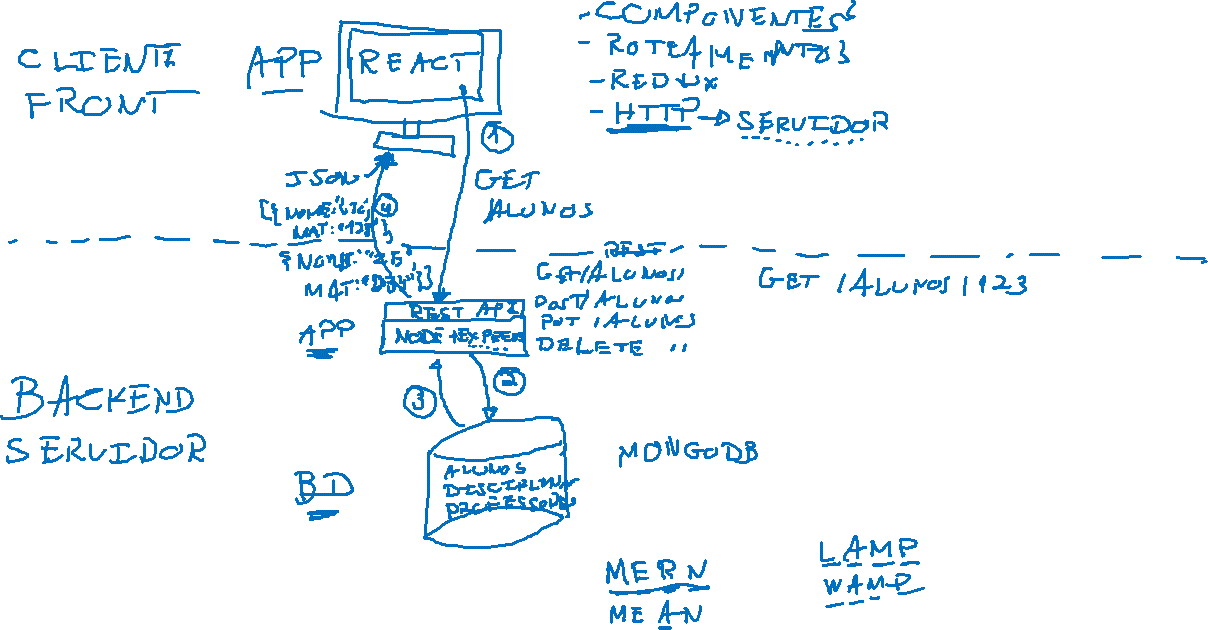 CLIENTE
FRONT
APP
REACT
- COMPONENTES
- ROTEAMENTOS
- REDUX
- HTTP → SERVIDOR
1
GET
/ALUNOS
JSON
4
[{NOME:
MAT:"123"},
REST
GET /ALUNOS
POST /ALUNOS
PUT /ALUNOS
DELETE "
GET /ALUNOS/123
REST API
NODE + EXPRESS
APP
3
2
BACKEND
SERVIDOR
BD
ALUNOS
MONGODB
MERN
MEAN
LAMP
WAMP